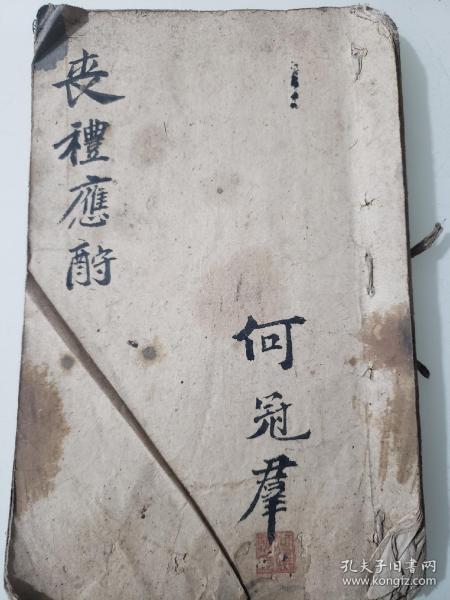 丧禮應酧
何冠羣
孔夫子旧书网
www.kongfz.com